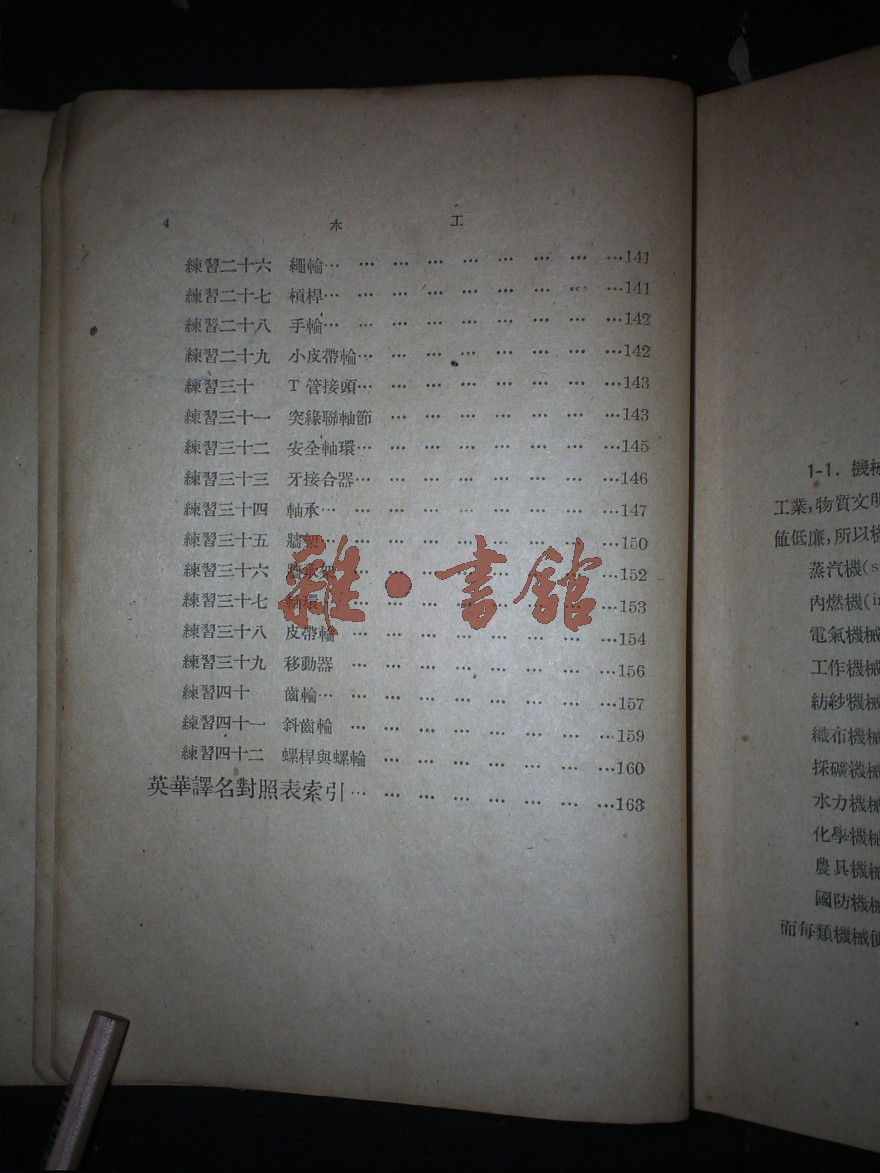 4 木 工
練習二十六 繩輪… … … … … … … … …141
練習二十七 槓桿… … … … … … … … …141
練習二十八 手輪… … … … … … … … …142
練習二十九 小皮帶輪… … … … … … … …142
練習三十 T 管接頭… … … … … … … …143
練習三十一 突緣聯軸節 … … … … … … …143
練習三十二 安全軸環… … … … … … … …145
練習三十三 牙接合器… … … … … … … …146
練習三十四 軸承… … … … … … … … …147
練習三十五 牆架… … … … … … … … …150
練習三十六 牆承架 … … … … … … … …152
練習三十七 軸環… … … … … … … … …153
練習三十八 皮帶輪 … … … … … … … …154
練習三十九 移動器 … … … … … … … …156
練習四十 齒輪… … … … … … … … …157
練習四十一 斜齒輪 … … … … … … … …159
練習四十二 螺桿與螺輪 … … … … … … …160
英華譯名對照表索引… … … … … … … …163
雜·書館
1-1. 機械
工業,物質文明
值低廉,所以
蒸汽機(s
內燃機(in
電氣機械
工作機械
紡紗機械
織布機械
採礦機械
水力機械
化學機械
農具機械
國防機械
而每類機械